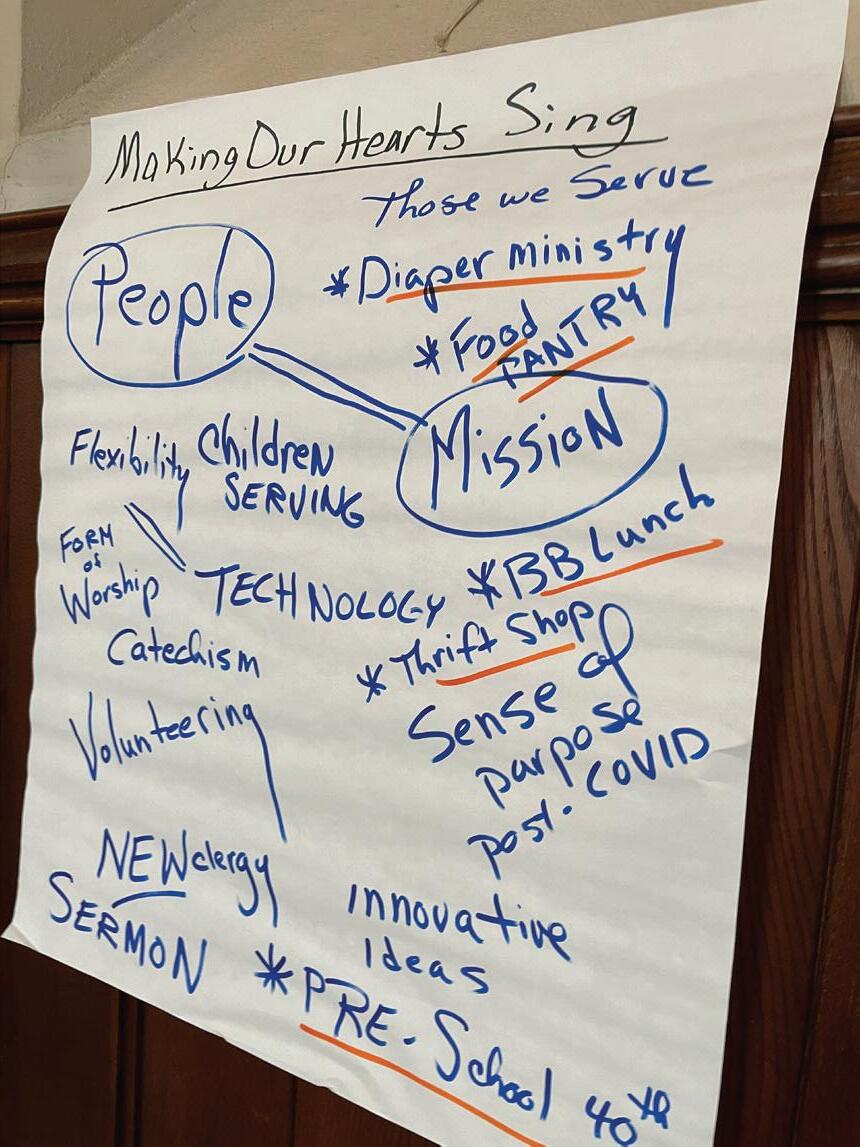 Making Our Hearts Sing
Those we Serve
People
* Diaper ministry
* Food
PANTRY
Mission
Flexibility
Children
SERVING
FORM
of
Worship
TECHNOLOGY
* BB Lunch
Catechism
* Thrift Shop
Volunteering
Sense of
purpose
post-COVID
NEW clergy
SERMON
innovative
Ideas
* PRE-School 40th